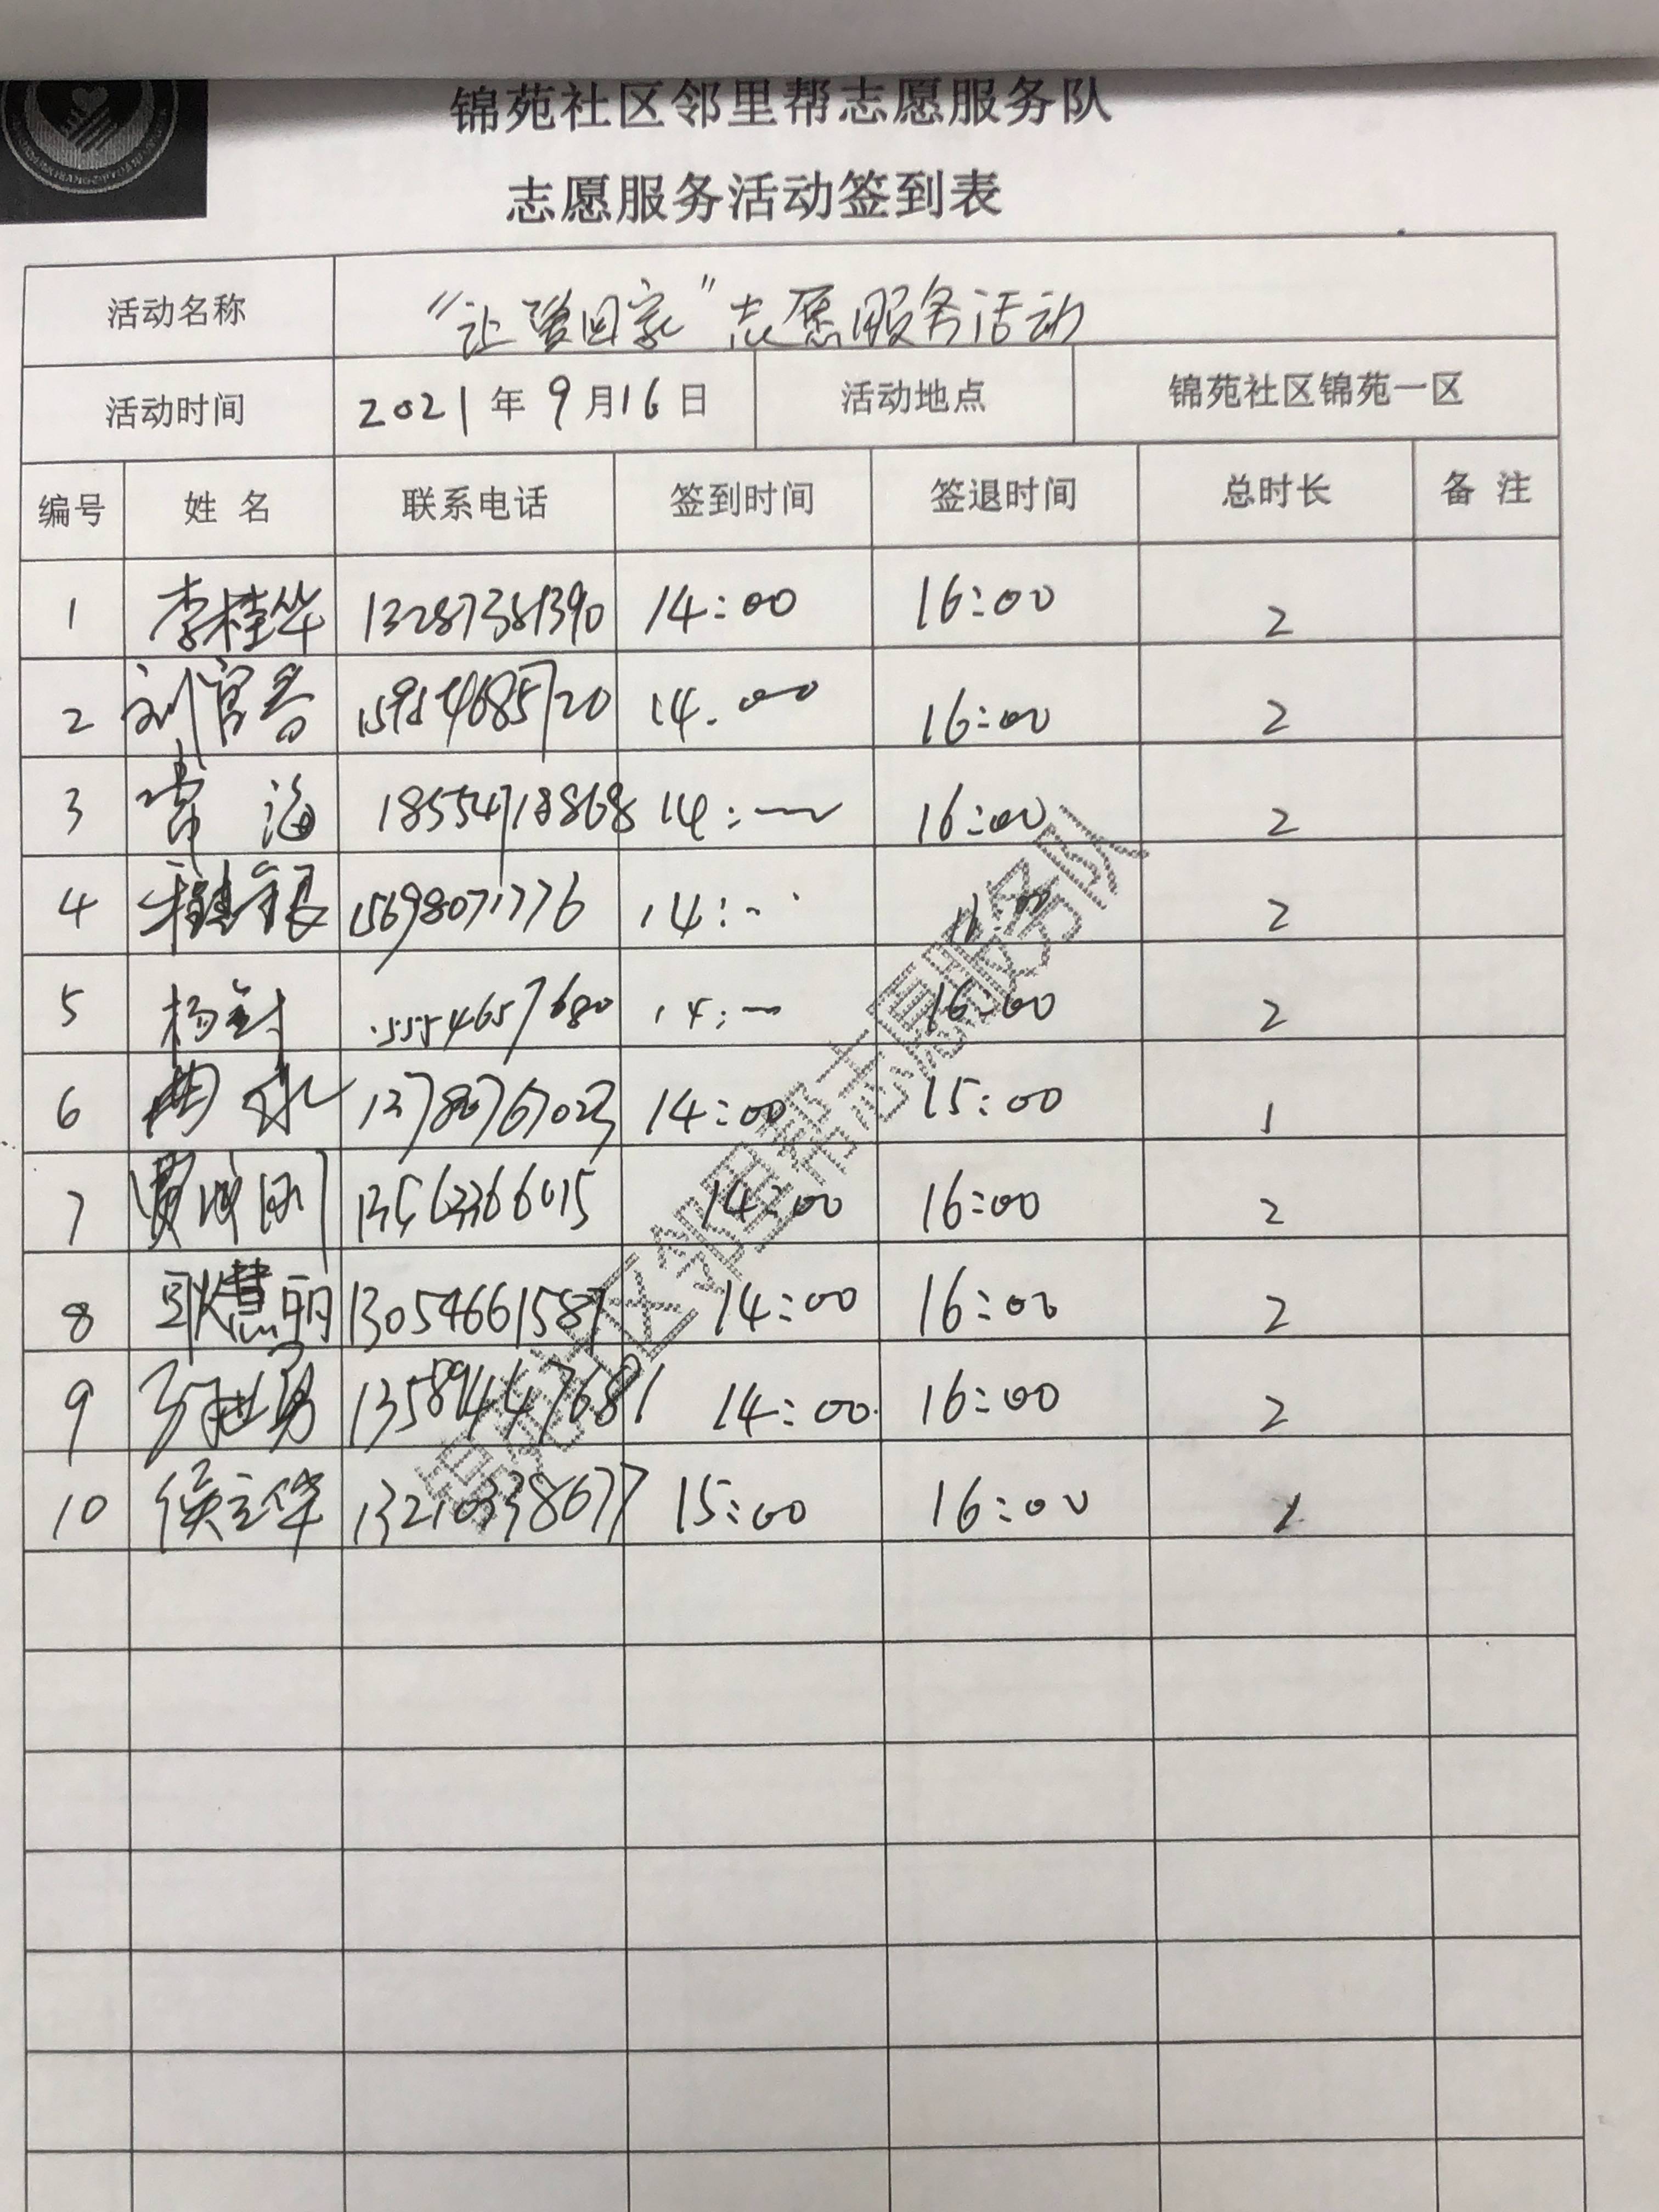 锦苑社区邻里帮志愿服务队
志愿服务活动签到表
活动名称 “让爱回家”志愿服务活动
活动时间 2021年9月16日 活动地点 锦苑社区锦苑一区
编号 姓名 联系电话 签到时间 签退时间 总时长 备注
1 李桂华 13287381390 14:00 16:00 2
2 14.00 16:00 2
3 18554718868 14: 16:00 2
4 15698071776 14: 2
5 14: 16:00 2
6 14:00 15:00 1
7 14:00 16:00 2
8 耿慧丽 13054661587 14:00 16:00 2
9 13589447681 14:00 16:00 2
10 侯立华 13210338677 15:00 16:00
锦苑社区邻里帮志愿服务队